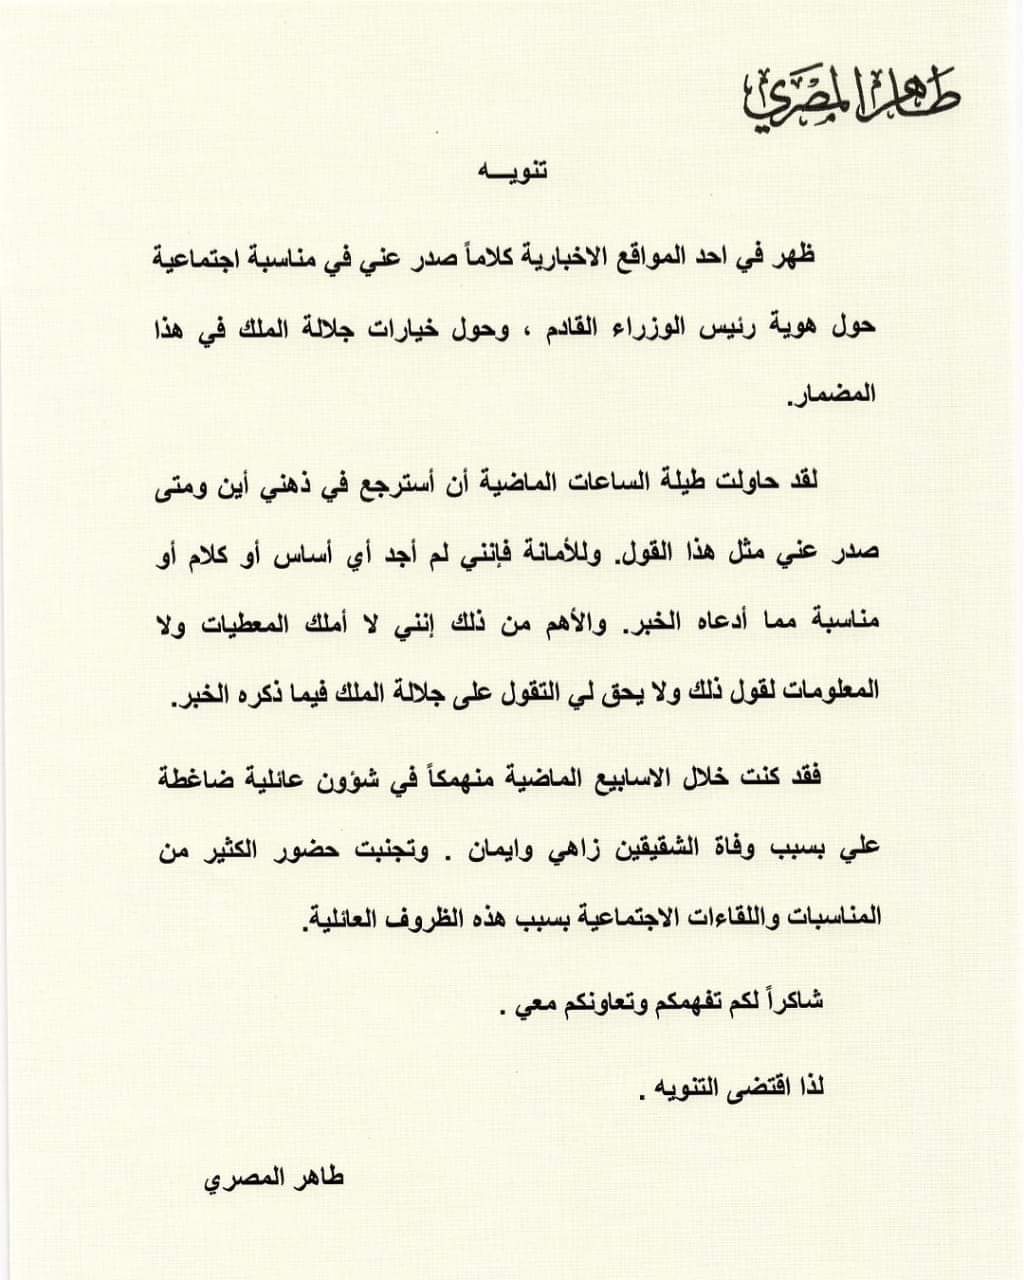 طاهر المصري
تنويـــه
ظهر في احد المواقع الاخبارية كلاماً صدر عني في مناسبة اجتماعية
حول هوية رئيس الوزراء القادم ، وحول خيارات جلالة الملك في هذا
المضمار.
لقد حاولت طيلة الساعات الماضية أن أسترجع في ذهني أين ومتى
صدر عني مثل هذا القول. وللأمانة فإنني لم أجد أي أساس أو كلام أو
مناسبة مما أدعاه الخبر. والأهم من ذلك إنني لا أملك المعطيات ولا
المعلومات لقول ذلك ولا يحق لي التقول على جلالة الملك فيما ذكره الخبر.
فقد كنت خلال الاسابيع الماضية منهمكاً في شؤون عائلية ضاغطة
علي بسبب وفاة الشقيقين زاهي وايمان . وتجنبت حضور الكثير من
المناسبات واللقاءات الاجتماعية بسبب هذه الظروف العائلية.
شاكراً لكم تفهمكم وتعاونكم معي .
لذا اقتضى التنويه .
طاهر المصري